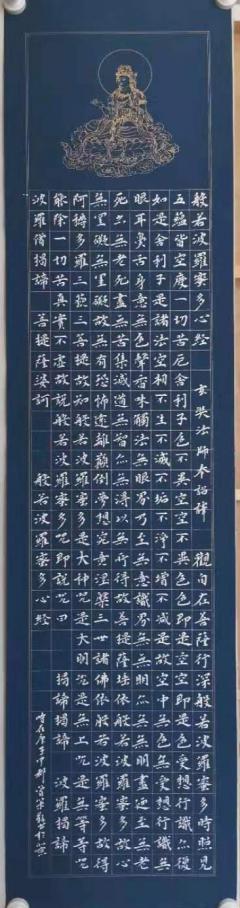 般若波羅蜜多心經 玄奘法師奉詔譯 觀自在菩薩行深般若波羅蜜多時照見
五蘊皆空度一切苦厄舍利子色不異空空不異色色即是空空即是色受想行識亦復
如是舍利子是諸法空相不生不滅不垢不淨不增不減是故空中無色無受想行識無
眼耳鼻舌身意無色聲香味觸法無眼界乃至無意識界無無明亦無無明盡乃至無老
死亦無老死盡無苦集滅道無智亦無得以無所得故菩提薩埵依般若波羅蜜多故心
無罣礙無罣礙故無有恐怖遠離顛倒夢想究竟涅槃三世諸佛依般若波羅蜜多故得
阿耨多羅三藐三菩提故知般若波羅蜜多是大神咒是大明咒是無上咒是無等等咒
能除一切苦真實不虛故說般若波羅蜜多咒即說咒曰 揭諦揭諦 波羅揭諦
波羅僧揭諦 菩提薩婆訶 般若波羅蜜多心經
時在庚子